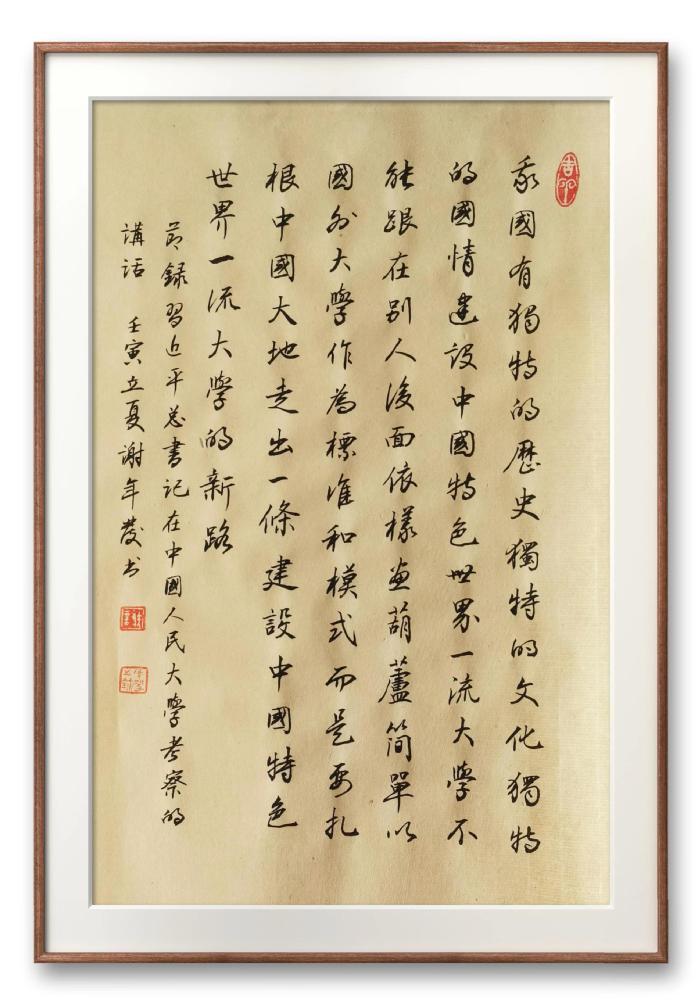 我國有獨特的歷史獨特的文化獨特
的國情建設中國特色世界一流大學不
能跟在别人後面依樣畫葫蘆简單以
國外大學作為標準和模式而是要扎
根中國大地走出一條建設中國特色
世界一流大學的新路
節錄習近平总書記在中國人民大學考察的
講话 壬寅立夏謝年發书